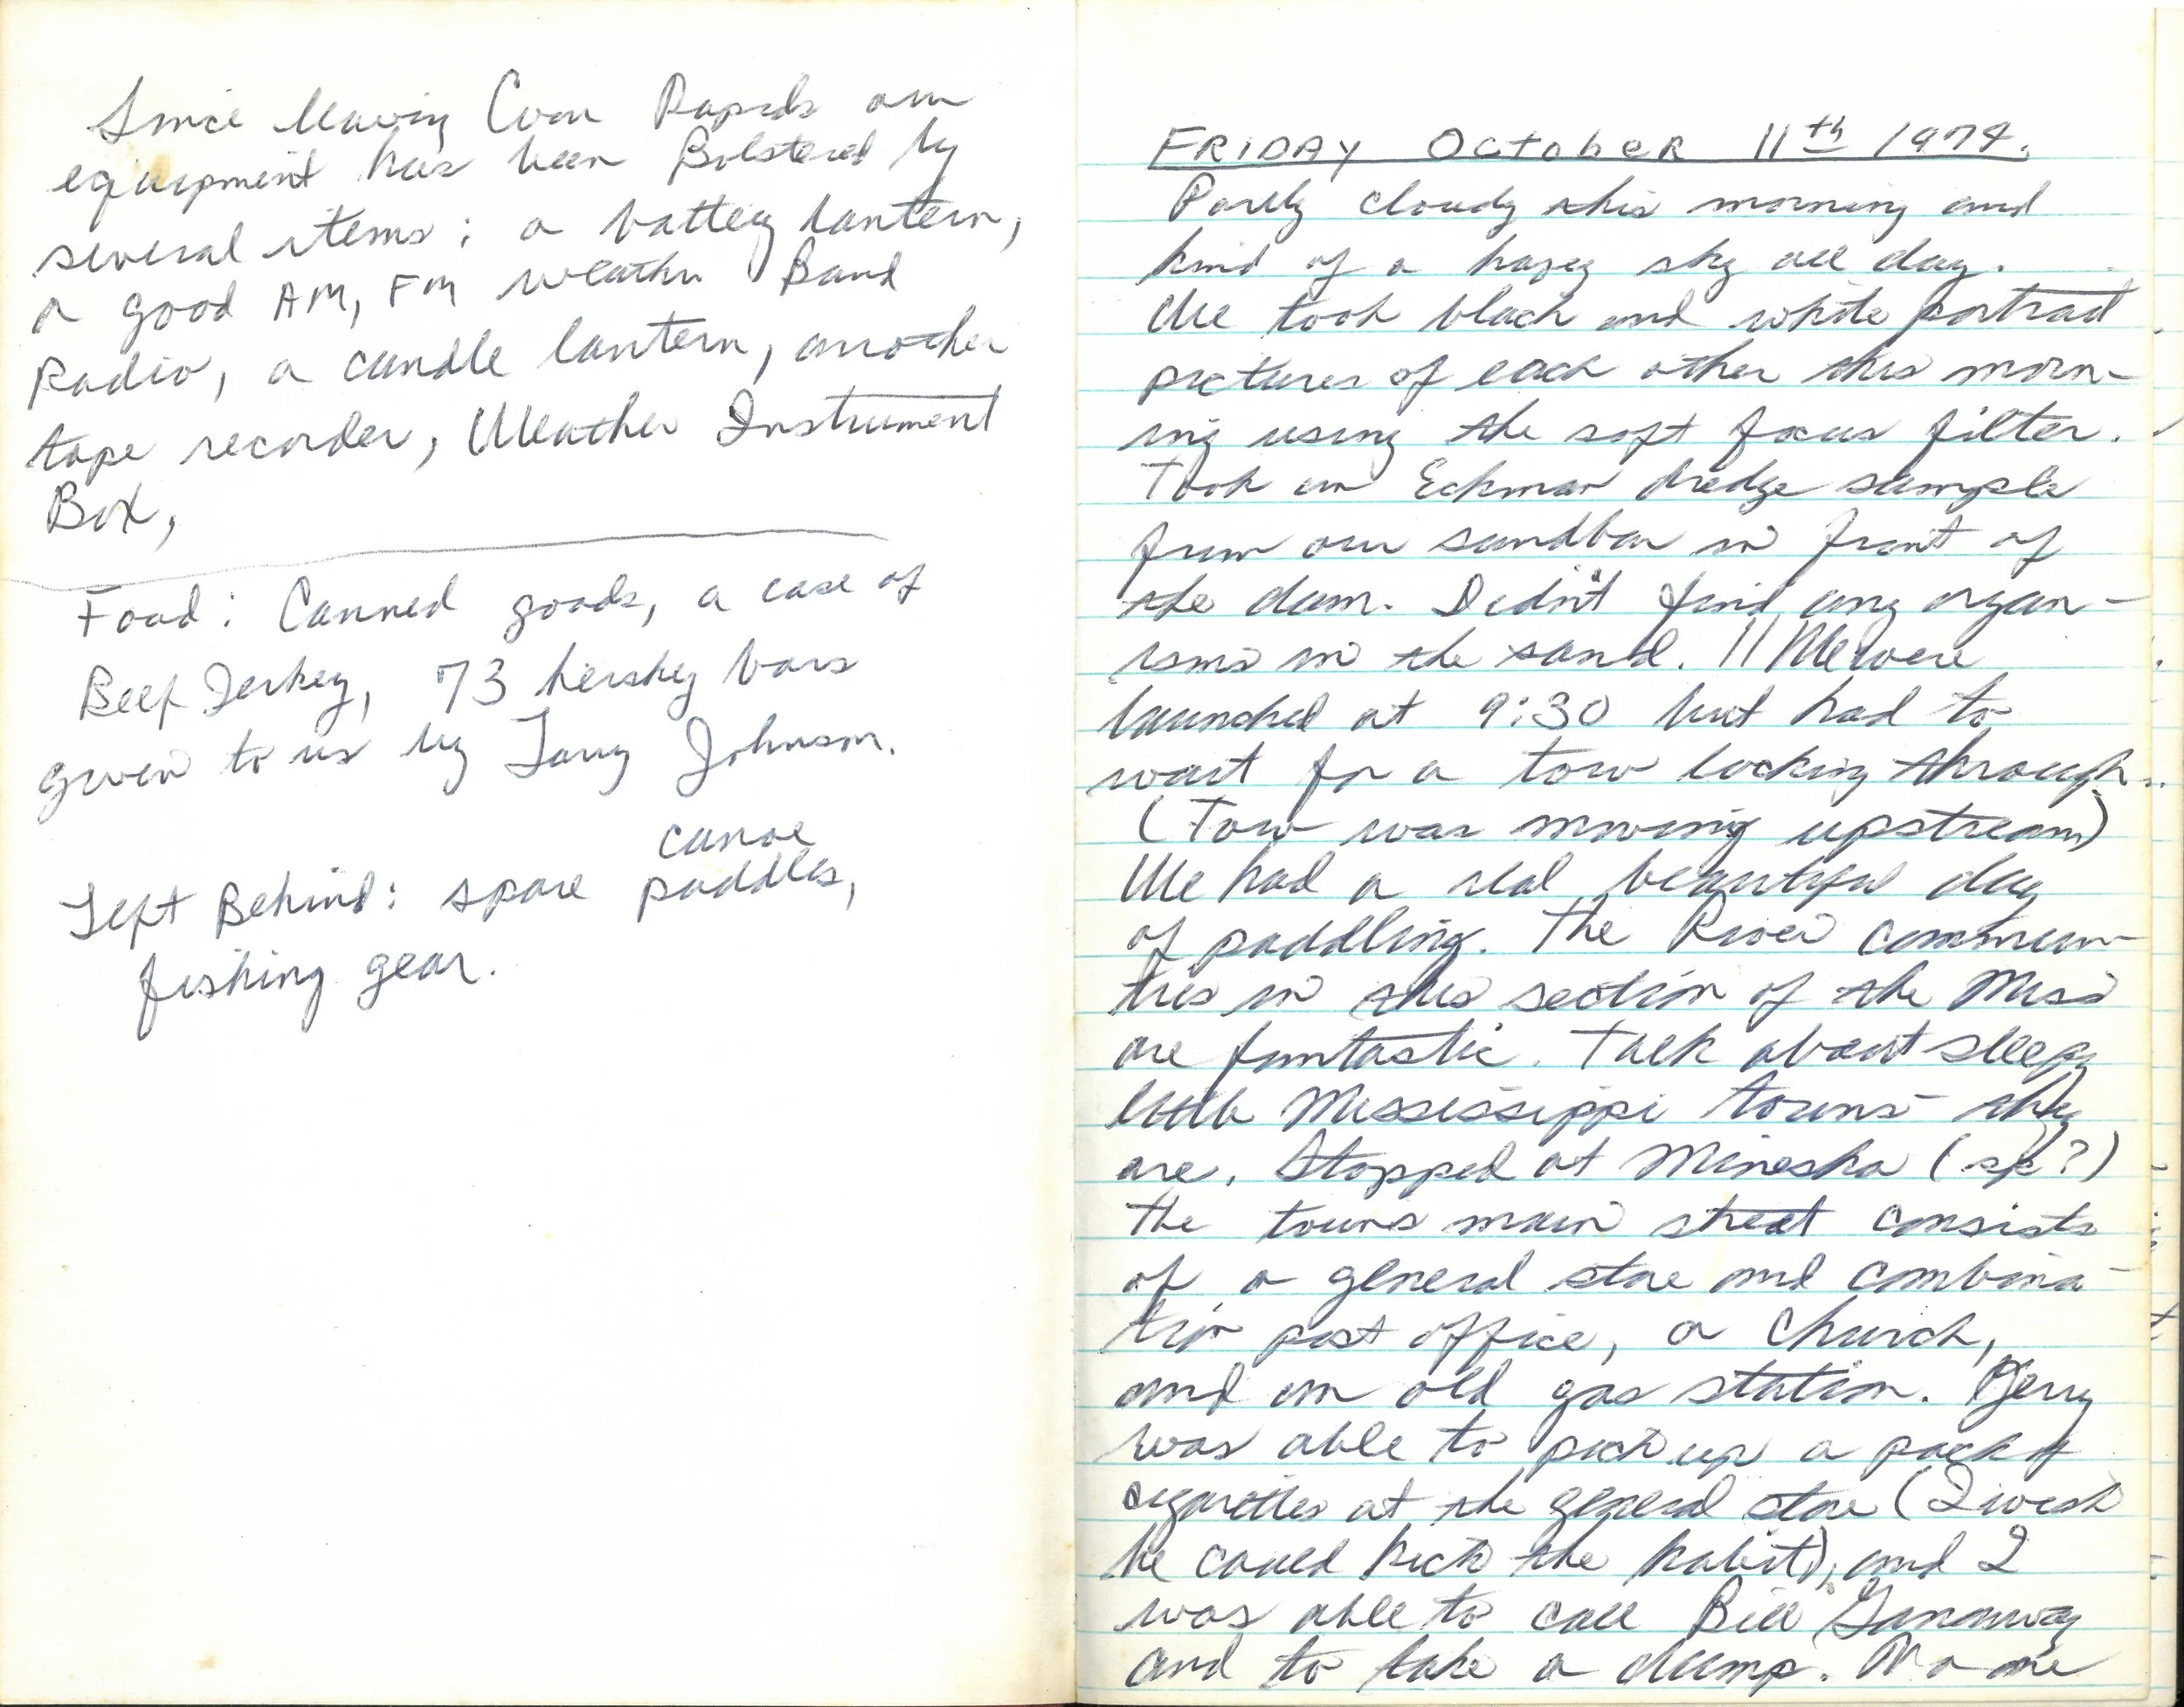 Since leaving Coon Rapids our
equipment has been Bolstered by
several items: a battery lantern,
a good AM, FM weather Band
Radio, a candle lantern, another
tape recorder, Weather Instrument
Box,
Food: Canned goods, a case of
Beef Jerkey, 73 hershey bars
given to us by Johnson.
canoe
Left Behind: spare paddles,
fishing gear.
FRIDAY OctobeR 11th 1974.
Partly cloudy this morning and
kind of a hazey sky all day.
We took black and white portrait
pictures of each other this morn-
ing using the soft focus filter.
Took an Eckman dredge sample
from our sandbar in front of
the dam. Didn't find any organ-
isms in the sand. // We were
launched at 9:30 but had to
wait for a tow locking through.
(Tow was moving upstream)
We had a real beautiful day
of paddling. The River commun-
ties in this section of the Miss
are fantastic. Talk about sleepy
little Mississippi towns- they
are. Stopped at Mineska (sp?)
the towns main street consists
of a general store and combina-
tion post office, a church,
and an old gas station. Jerry
was able to pick up a pack of
cigarettes at the general store (I wish
he could kick the habit), and I
was able to call Bill
and to take a dump. No one